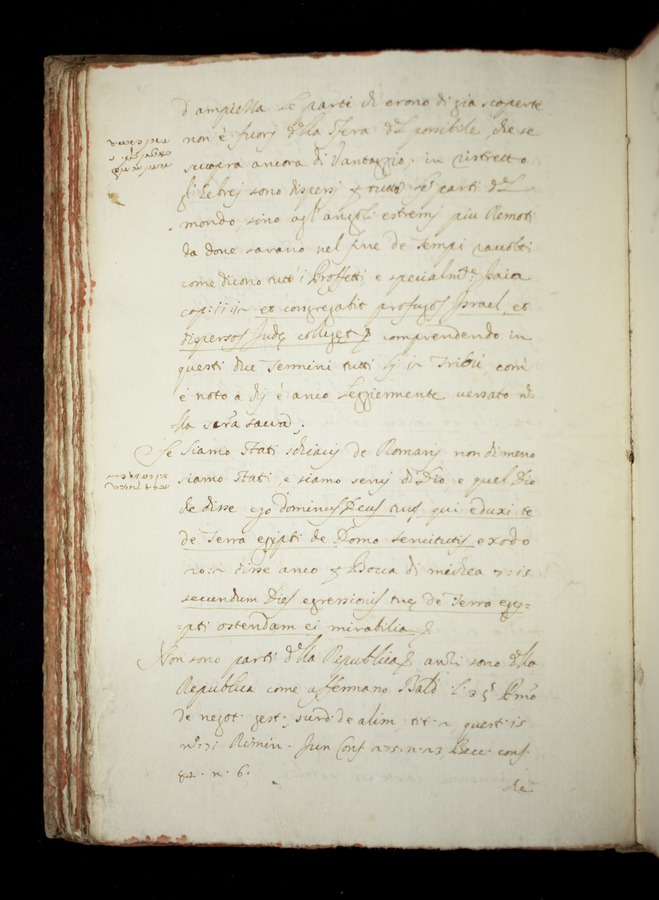 d'ampiezza le parti di erono di gia scoperte
non è fuorj della sfera del possibile, che se
scuopra ancora di vantaggio; in ristretto
gl'Ebrej sono dispersi tutte le parti del
mondo, sino agl'angoli estremj piu Remoti
da doue sarano nel fine de Tempi racolti
come dicono tutt'i Proffetti e specialmte Isaia
cap: 11: 12 et congregabit profugos Israel, et
dispersos Judę colliget comprendendo in
questi due Termini tutti li 12 Tribù, com'
è noto à chj è anco leggiermente uersato ne
lla scra sacra;
Se siamo stati schiaui de Romani nondimeno
siamo stati, e siamo seruj di Dio, e quel Dio
che disse ego Dominus Deus tuus, qui eduxi te
de Terra egipti de Domo seruitutis exodo
20: 2 disse anco Bocca di michea 7: 15
secundum Dies egressionis tuę de Terra egy=
=pti ostendam ei mirabilia
Non sono parti della Republica anzi sono della
Republica come affermano Bald l: 35 Pmo
de negot gest; surd: de alim, tit: 2 quest: 15
no: 7: Rimin. Jun Cons. 275: n: 23, Becc: cons.
84. n: 6.
che